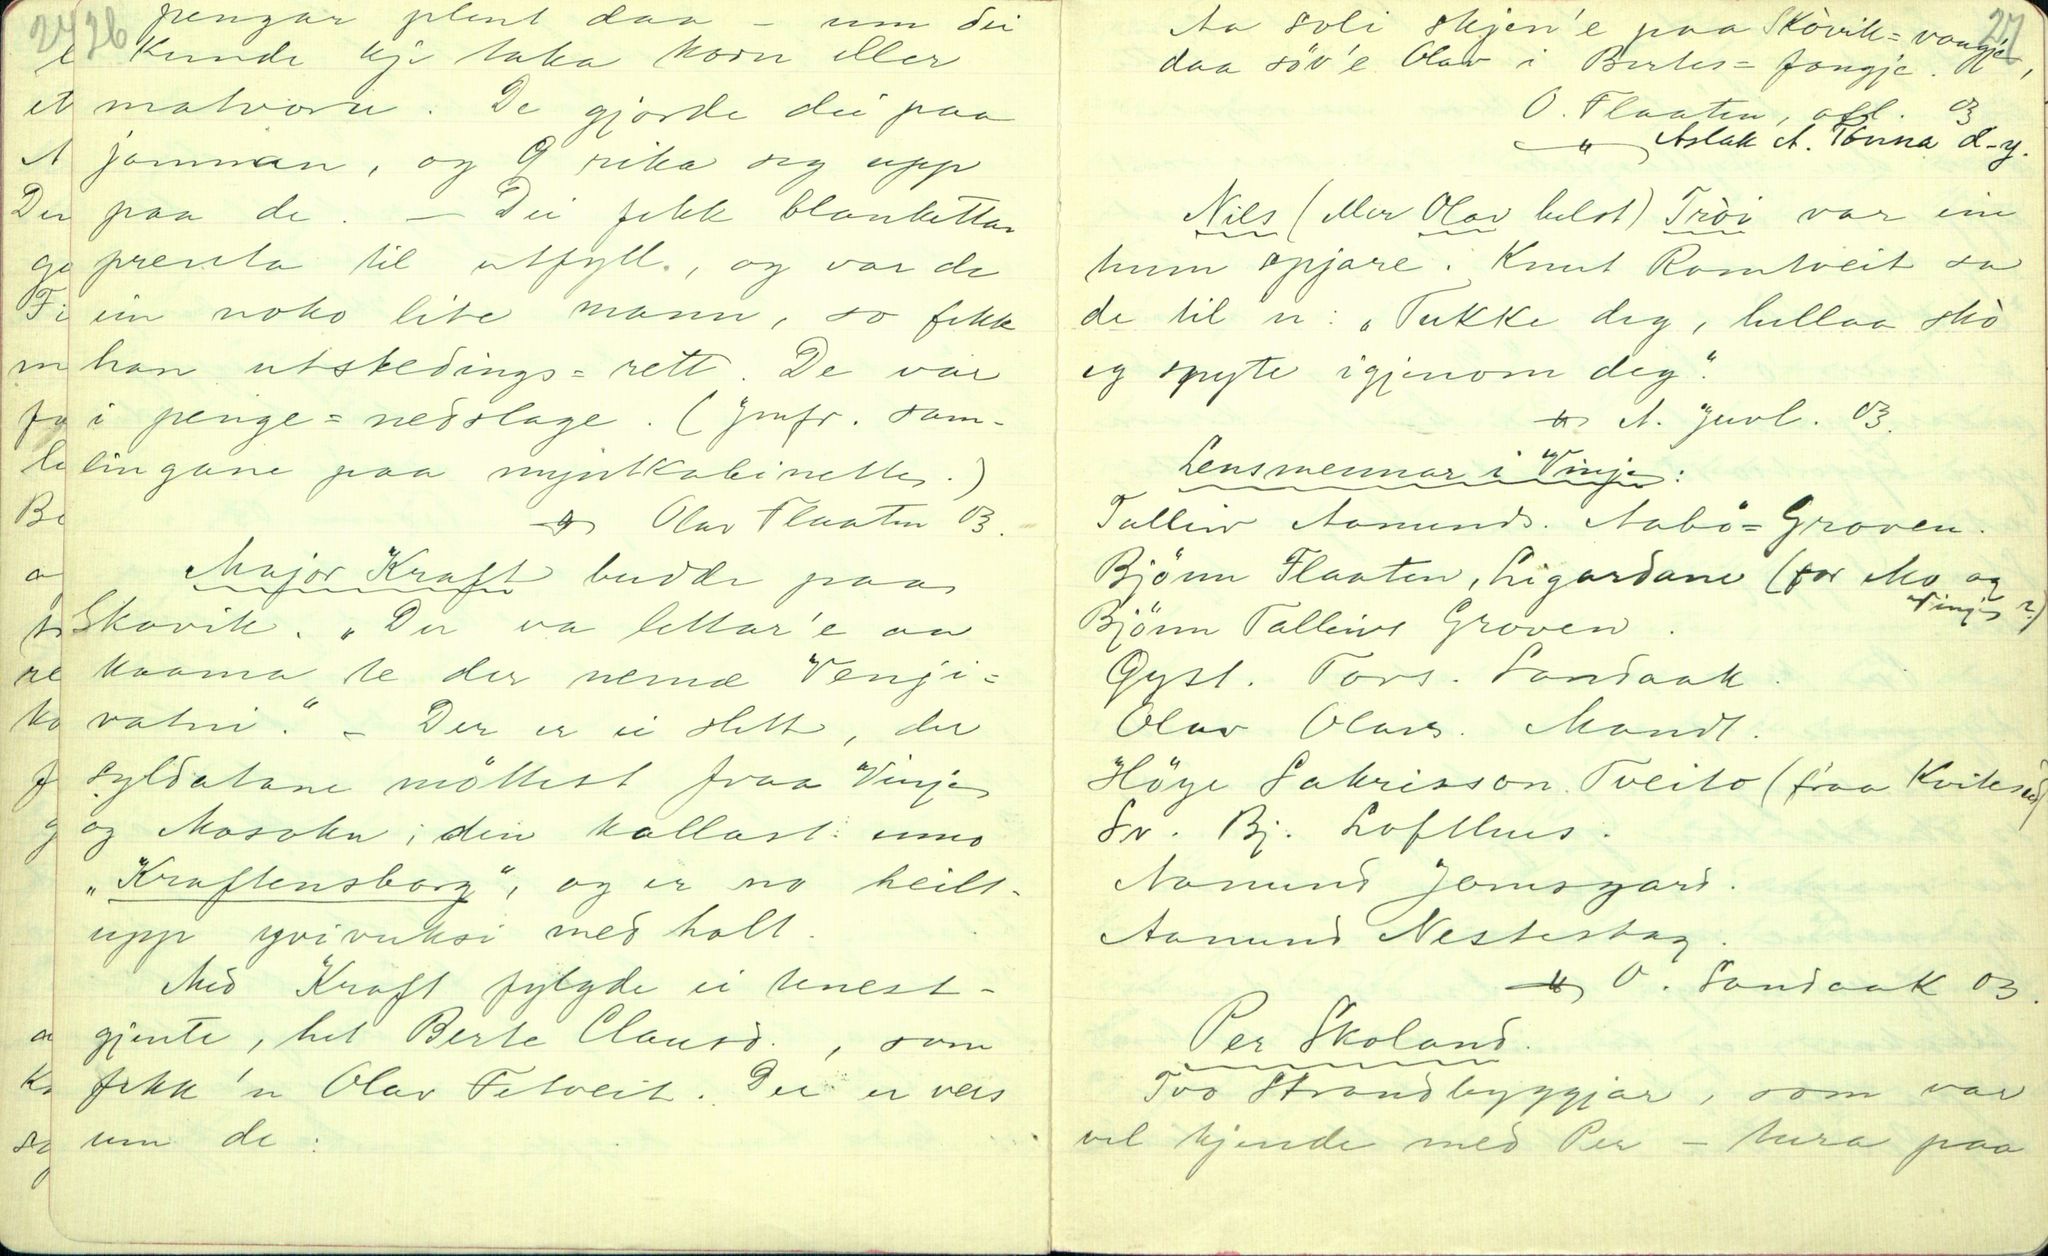 26
pengar plent daa - um dei
kunde kje taka korn eller
matvoru. De gjorde dei paa
jamnan, og rika seg upp
paa de. — Dei fekk blankettar
prenta til utfyll., og var de
ein noko lite mann, so fekk
han utstedings=rett. De var
i penge=nedslage. (Jmfr. sam-
lingane paa myntkabinette.)
Olav Flaaten 03.
Major Kraft budde paa
Skovik. "Der va lettar'e aa
kaama te der neme Venji=
vatni." - Der er ei slett, der
syldatane möttest fraa Vinje
og Mosokn; den kallast enno
"Kraftensborg", og er no heilt-
upp yvivuksi med holt.
Med Kraft fylgde ei tenest-
gjente, het Berte Clausd., som
fekk 'n Olav Fetveit. Dei er vers
um de:
27
Aa soli skjen'e paa Skòvik=vaagje,
daa söv'e Olav i Bertes=fangje.
O. Flaaten, ofl. 03
" Aslak A. Tònna d-y.
Nils (eller Olav helst) Tròi var ein
hum spjare. Knut Romtveit sa
de til n: "Tukke deg, hellaa skò
eg spyte igjenom deg".
A. Juvl. 03.
Lensmennar i Vinje:
Talleiv Aamunds. Nabö=Groven.
Björn Flaaten, Ligardane (for Mo og
Vinje?)
Björn Talleivs Groven.
Gyst. Tors. Sandaak.
Olav Olavs. Mandt.
Höge Sakrisson Tveito (fraa Kviteseid)
Sv. Bj. Lofthus.
Aamund Jamsgard.
Aamund Nestestog.
O. Sandaak 03.
Per Skoland.
Tvo Strandbyggjar, som var
vel kjende med Per - tura paa